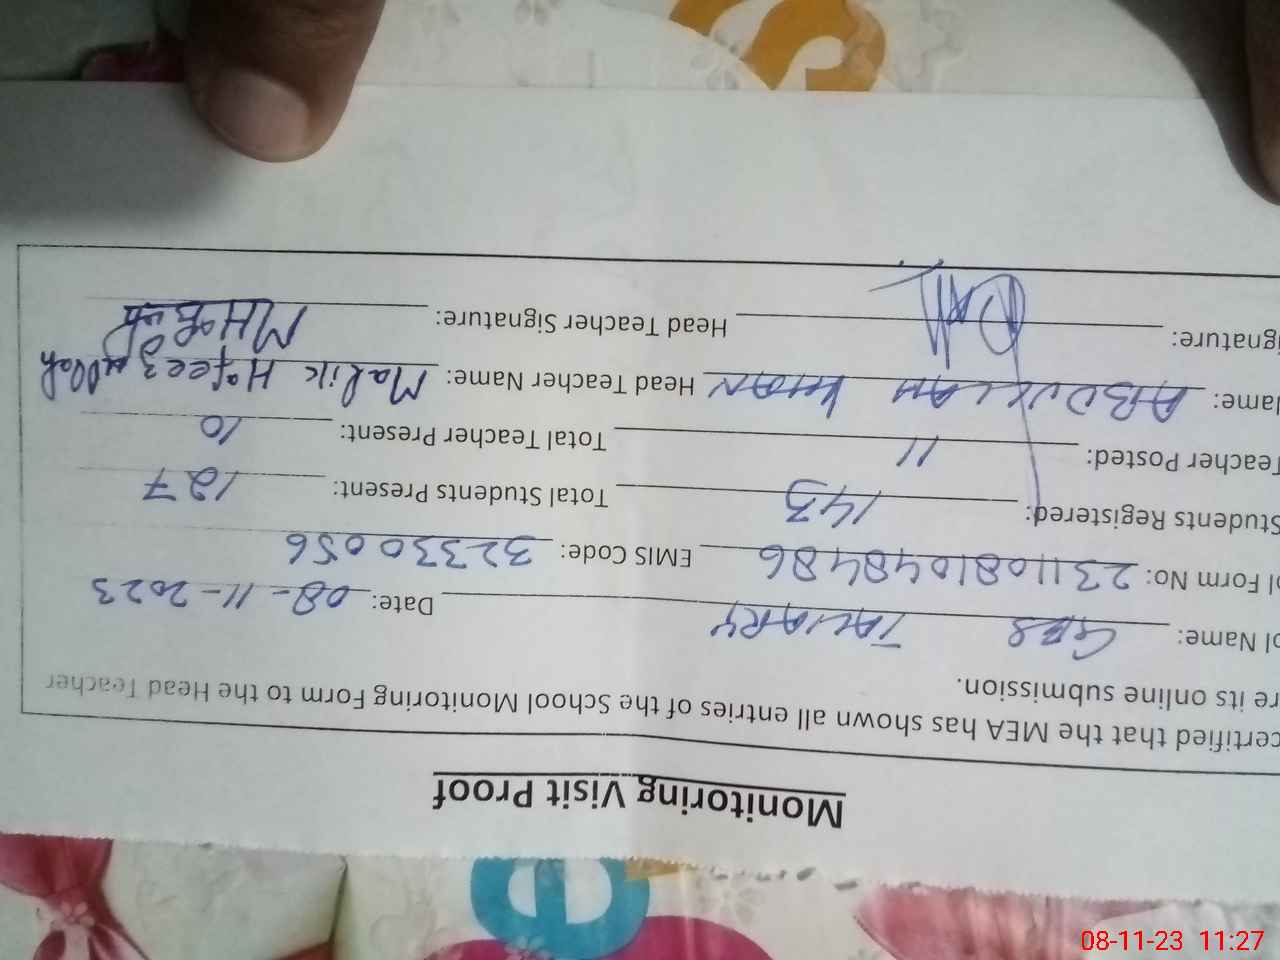 Monitoring Visit Proof
certified that the MEA has shown all entries of the School Monitoring Form to the Head Teacher
re its online submission.
ol Name: GES JALWARY Date: 08-11-2023
ol Form No: 2311081048486 EMIS Code: 32330056
Students Registered: 143 Total Students Present: 127
Teacher Posted: 11 Total Teacher Present: 10
ame: ABDULLAH KHAN Head Teacher Name: Malik Hafeez ullah
ignature: Head Teacher Signature:
08-11-23 11:27